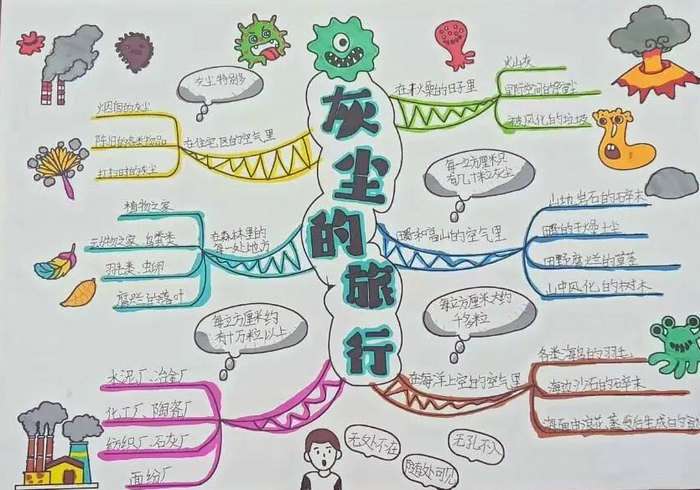 灰尘的旅行
灰尘特别多
烟囱的灰尘
打扫时的灰尘
在住宅区的空气里
植物之家
羽毛类、虫卵
腐烂的落叶
在森林里的
每一处地方
每立方厘米约
有十万粒以上
水泥厂、冶金厂
化工厂、陶瓷厂
纺织厂、石灰厂
面纷厂
的日子里
火山灰
被风化的垃圾
每立方厘米只
有几十粒灰尘
和高山的空气里
岩石的碎末
的干燥土尘
田野腐烂的草
山中风化的树木
每立方厘米大约
千多粒
在海洋上空的空气里
各类海鸟的羽毛
海边沙石的碎末
海面由浪花蒸发后生成
无处不在
随处可见
无孔不入